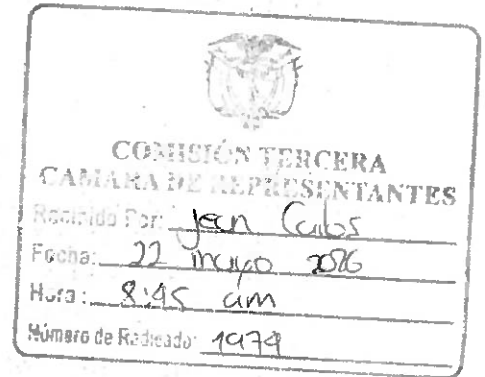 COMISIÓN TERCERA
CAMARA DE REPRESENTANTES
Recibido Por: Jean Carlos
Fecha: 22 mayo 2026
Hora: 8:45 am
Número de Radicado: 1979